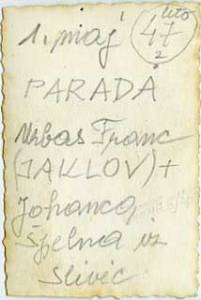 1. maj
leto
47
2
PARADA
Urbas Franc
(JAKLOV) +
Johanca
Špelna iz
Slivic